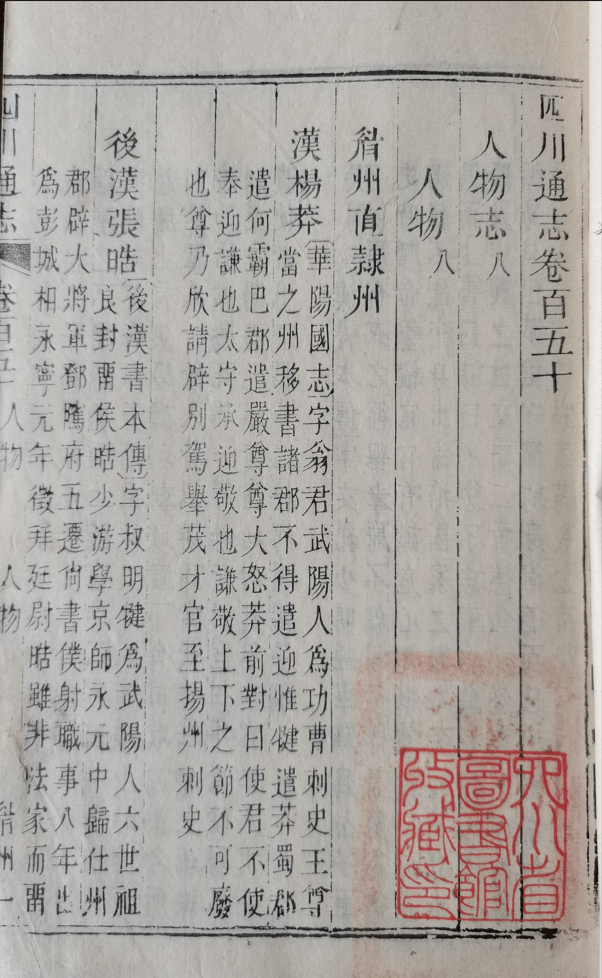 四川通志卷百五十
人物志八
人物八
睂州直隷州
漢楊莽華陽國志字翁君武陽人爲功曹刺史王尊
當之州移書諸郡不得遣迎惟犍遣莽蜀郡
遣何霸巴郡遣嚴尊尊大怒莽前對曰使君不使
奉迎謙也太守承迎敬也謙敬上下之節不可廢
也尊乃欣請辟别駕舉茂才官至揚州刺史
後漢張晧後漢書本傳字叔明犍爲武陽人六世祖
良封畱侯晧少游學京師永元中歸仕州
郡辟大將軍鄧騭府五遷尚書僕射職事八年出
爲彭城相永寧元年徵拜廷尉晧雖非法家而畱
四川通志 卷百五十 人物 人物 睂州 一
四川省
圖書館
收藏印